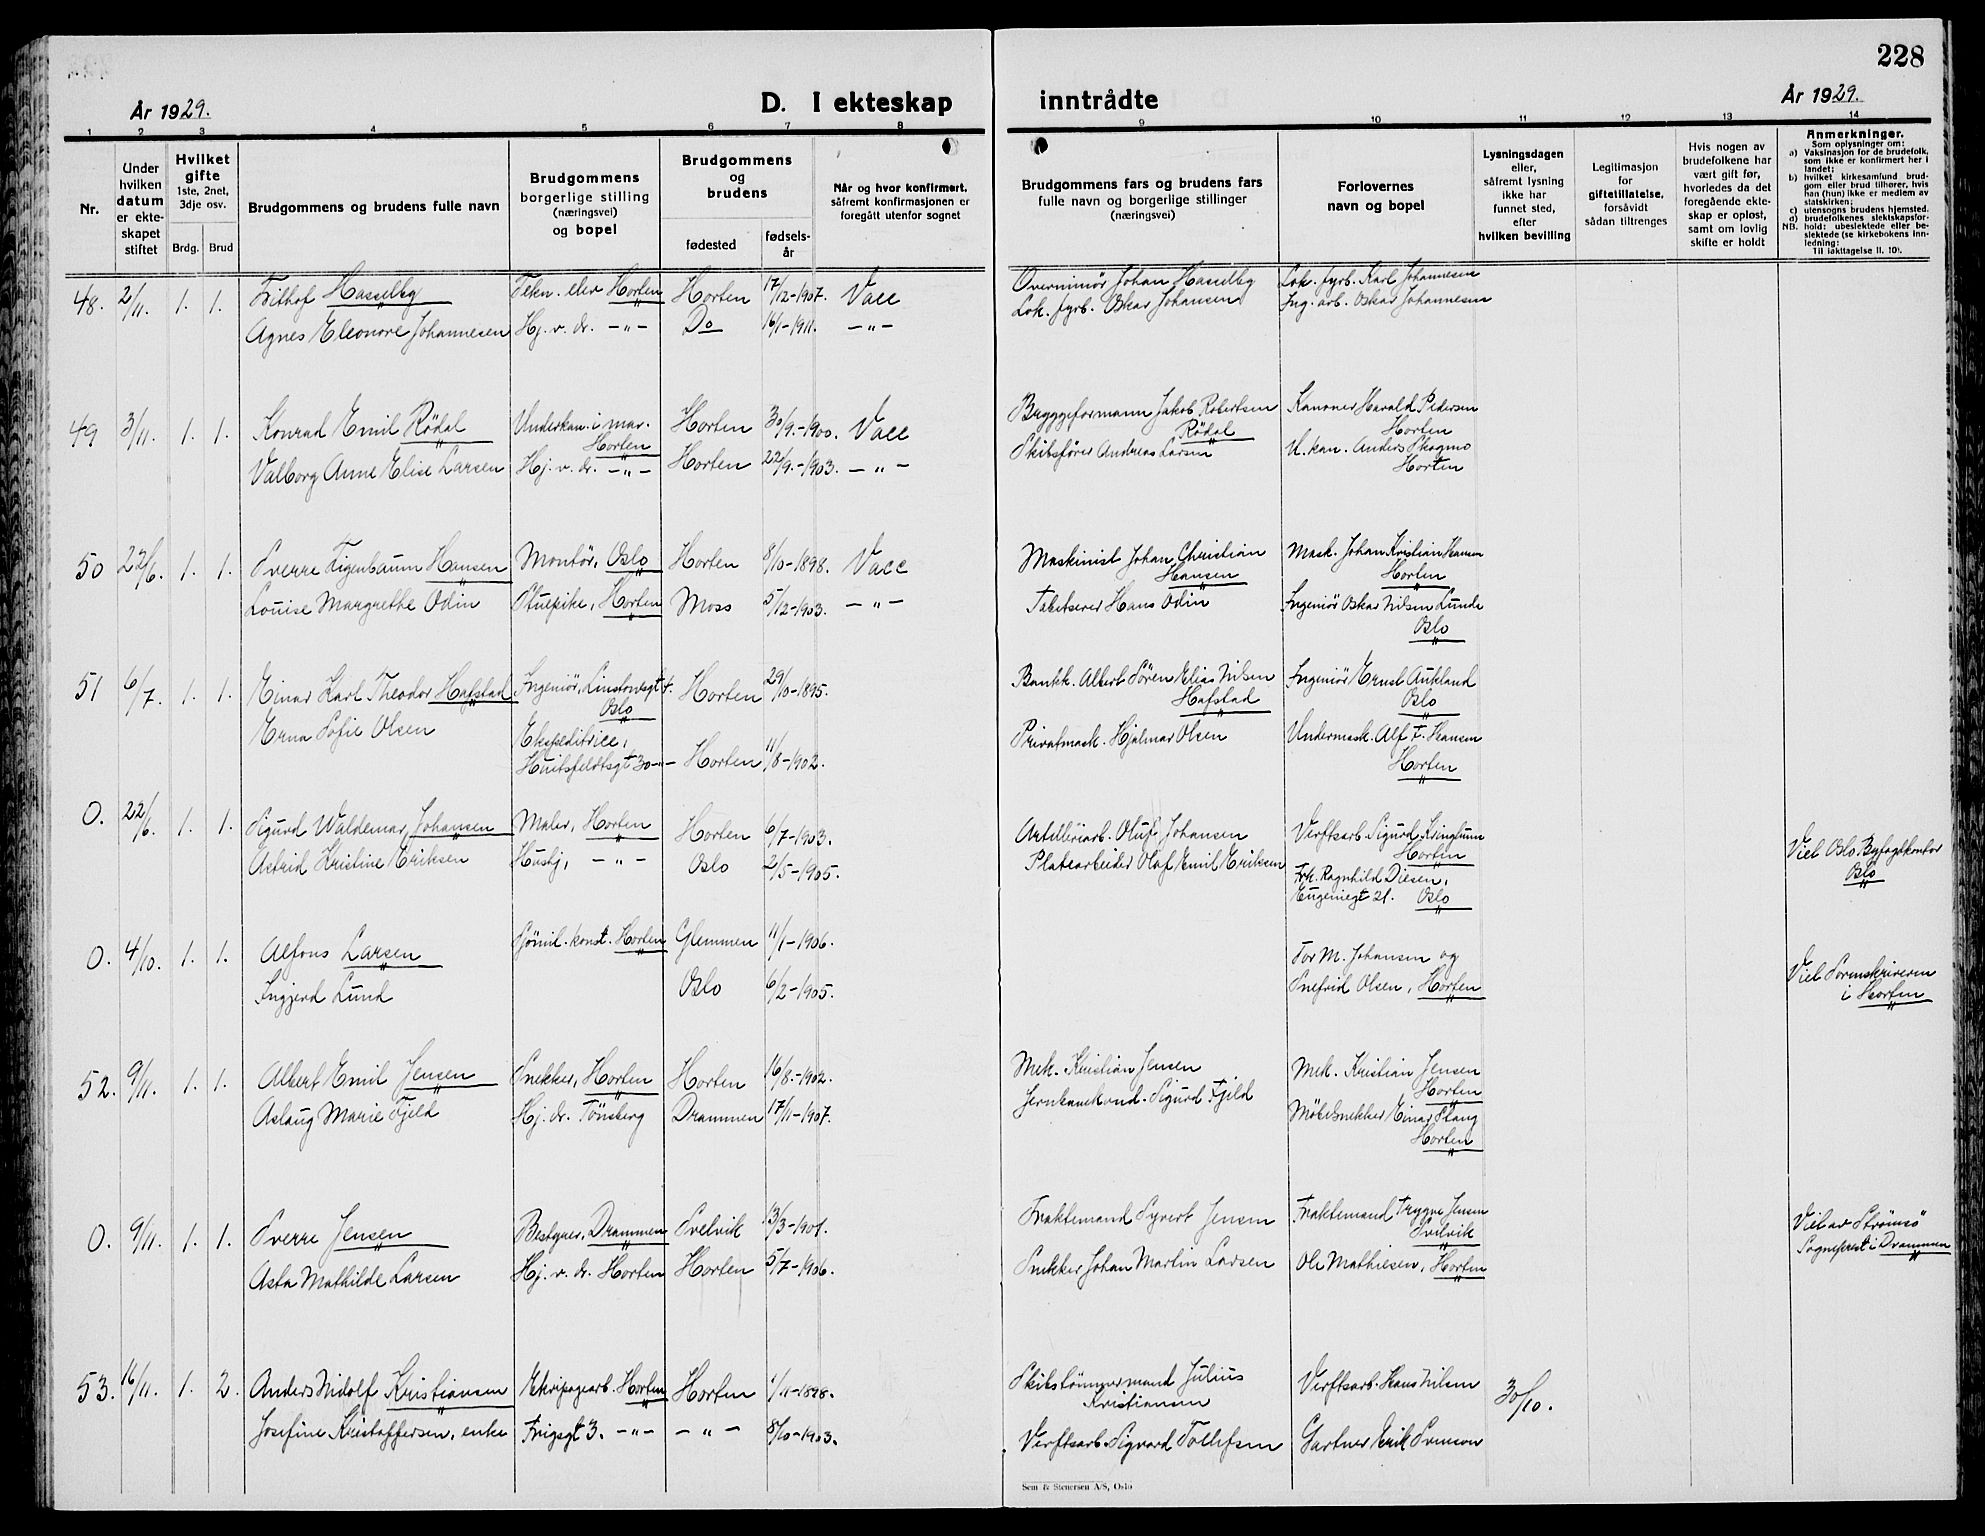 228
År 1929.
D. I ekteskap inntrådte
År 1929.
1 2 3 4 5 6 7 8 9 10 11 12 13 14
Nr.
Under hvilken datum er ekteskapet stiftet
Hvilket gifte
1ste, 2net, 3dje osv.
Brdg. Brud
Brudgommens og brudens fulle navn
Brudgommens borgerlige stilling (næringsvei) og bopel
Brudgommens og brudens
fødested
fødselsår
Når og hvor konfirmert, såfremt konfirmasjonen er foregått utenfor sognet
Brudgommens fars og brudens fars fulle navn og borgerlige stillinger (næringsvei)
Forlovernes navn og bopel
Lysningsdagen eller, såfremt lysning ikke har funnet sted, efter hvilken bevilling
Legitimasjon for giftetillatelse, forsåvidt sådan tiltrenges
Hvis nogen av brudefolkene har vært gift før, hvorledes da det foregående ekteskap er opløst, samt om lovlig skifte er holdt
Anmerkninger.
Som oplysninger om:
a) Vaksinasjon for de brudefolk, som ikke er konfirmert her i landet;
b) hvilket kirkesamfund brudgom eller brud tilhører, hvis han (hun) ikke er medlem av statskirken;
c) utensogns brudens hjemsted.
d) brudefolkenes slektskapsforhold: ubeslektede eller beslektede (se kirkebokens innledning:
NB.
Til iakttagelse II. 10).
48. 2/11. 1. 1. Frithof Hasselby Tekn. elev Horten Horten 17/12-1907. Vacc Overminør Johan Hasselby Lok. fyrb. Karl Johannesen
Agnes Eleonore Johannesen Hj. v. dr. -"- Do 16/1-1911. -"- Lok. fyrb. Oskar Johansen Ing. arb. Oskar Johannesen
49 3/11. 1. 1. Konrad Emil Rödal Underkan. i mar. Horten Horten 30/9.-1900. Vacc Bryggeformann Jakob Robertsen Rödal Kanoner Harald Pedersen Horten
Valborg Anne Elise Larsen Hj. v. dr. -"- Horten 22/9.-1903. -"- Skibsfører Andreas Larsen U. kan. Anders Skogmo Horten
50 22/6. 1. 1. Sverre Figenbaum Hansen Montör, Oslo Horten 8/10-1898. Vacc Maskinist Johan Christian Hansen Mask. Johan Kristian Hansen Horten
Louise Margrethe Odin Stuepike, Horten Moss 5/12-1903. -"- Hans Odin Ingeniör Oskar Nilsen Lunde Oslo
51 6/7. 1. 1. Einar Karl Theodor Hafstad Ingeniör, Linstowsgt 4. Oslo Horten 29/10-1895. Bankk. Albert Sören Elias Nilsen Hafstad Ingeniör Ernst Aukland Oslo
Erna Sofie Olsen Ekspeditrice, Huitfeldtsgt 30 -"- Horten 11/8-1902. Privatmask. Hjalmar Olsen Undermask. Alf F. Hansen Horten
0. 22/6. 1. 1. Sigurd Waldemar Johansen Maler, Horten Horten 6/7-1903. Artilleriarb. Oluf Johansen Verftsarb. Sigurd Kringlum Horten Viet Oslo Byfogdkontor Oslo
Astrid Kristine Eriksen Hushj, -"- Oslo 2/5-1905. Platearbeider Olaf Emil Eriksen Frk. Ragnhild Diesen, Eugeniegt 21. Oslo
0. 4/10. 1. 1. Alfons Larsen Sjömil. konst. Horten Glemmen 11/1-1906. Tor M. Johansen og Viet Sorenskriveren i Horten
Ingjerd Lund Oslo 6/2-1905. Snefrid Olsen, Horten
52. 9/11. 1. 1. Albert Emil Jensen Snekker, Horten Horten 16/8.-1902. Mek. Kristian Jensen Mek. Kristian Jensen Horten
Aslaug Marie Fjeld Hj. dr. Tönsberg Drammen 17/11-1907. Sigurd Fjeld Möbelsnekker Einar Stang Horten
0. 9/11. 1. 1. Sverre Jensen Bestyrer, Drammen Svelvik 13/3-1901. Fraktemand Syvert Jensen Fraktemand Trygve Jensen Svelvik Viet av Strömsö Sogneprest i Drammen
Asta Mathilde Larsen Hj. v. dr. Horten Horten 5/7-1906. Snekker Johan Martin Larsen Ole Mathiesen, Horten
53. 16/11. 1. 2. Anders Nidolf Kristiansen Ekvipagearb. Horten Horten 1/11-1898. Skibstömmermand Julius Kristiansen Verftsarb. Hans Nilsen 30/10.
Josefine Kristoffersen, enke Frigsgt 3. -"- -"- 8/10-1903. Verftsarb. Sigvard Tollefsen Gartner Erik Svenson
Sem & Stenersen A/S, Oslo